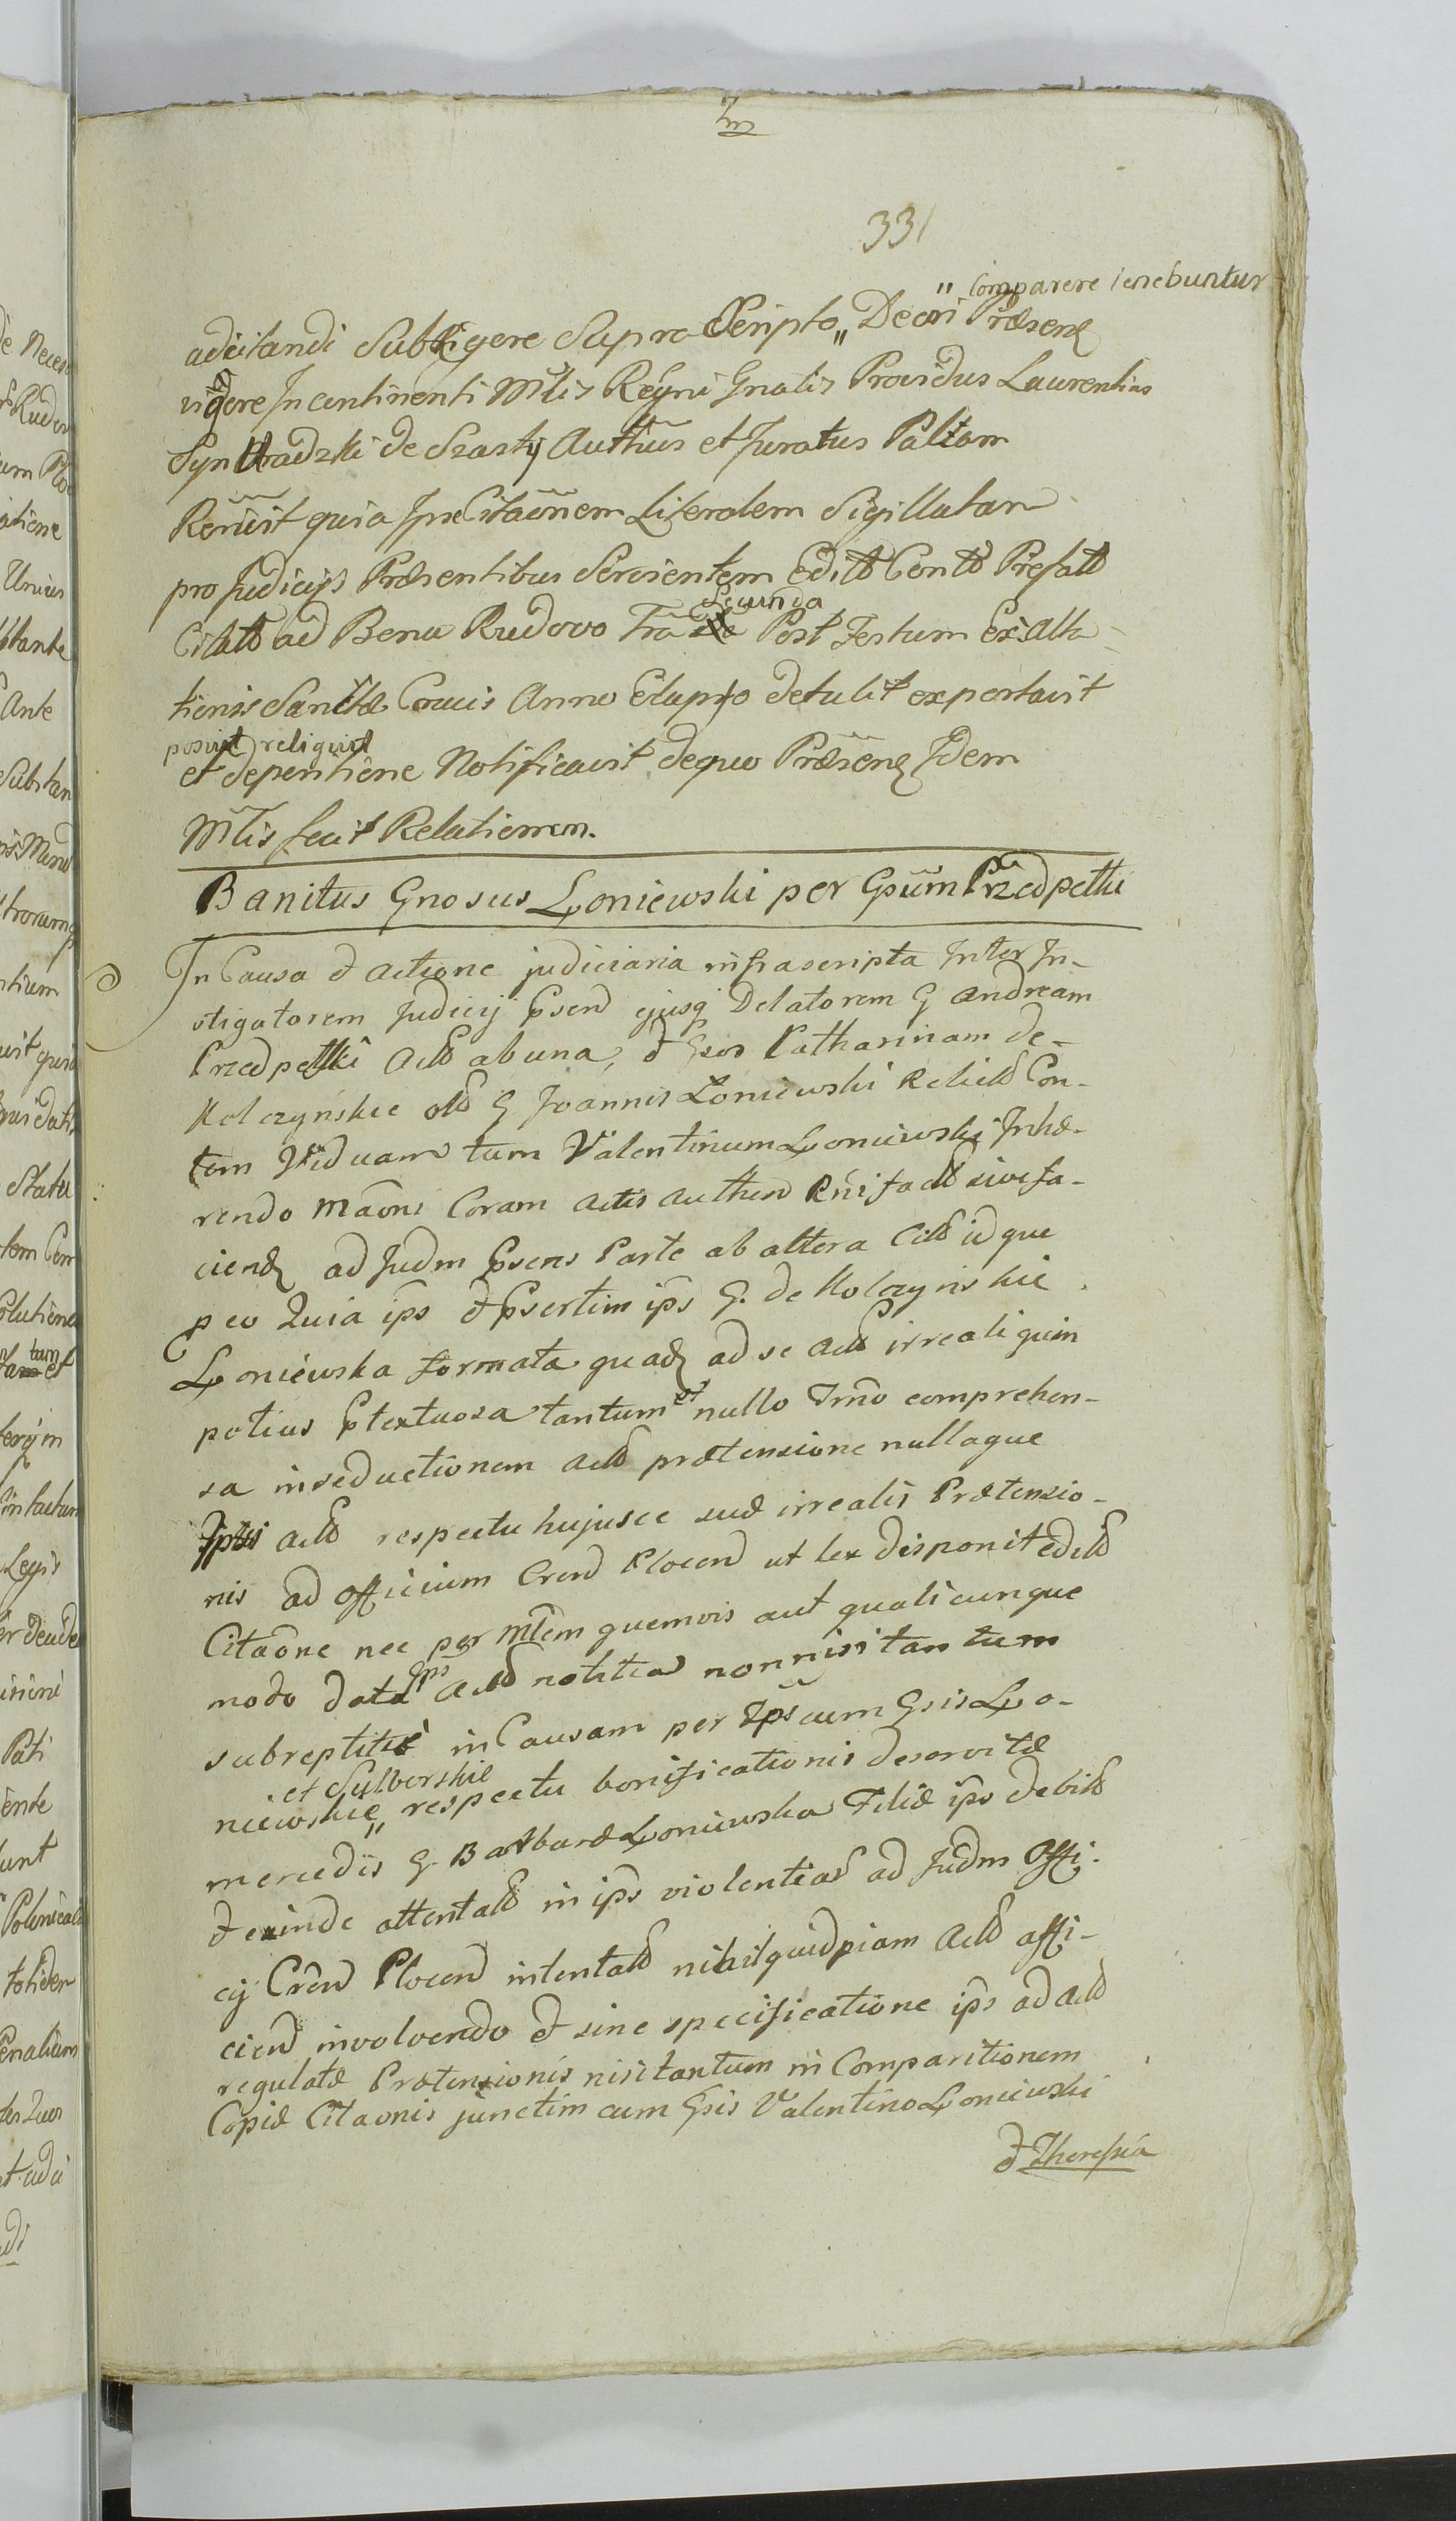 331
" Comparere tenebuntur
adcitandi Subtigere Supra Scripto " Decori Præsen
vigore In continenti Mtlis Regni Gnalis Providus Laurentius
Syn Uradzki de Szasty Authus et Juratus Palam
Recñuit quia Ipse Citaõnem Literalem Sigillatam
pro Judicijs Præsentibus Servientem Edit Cont Præfat
Citat ad Bona Rudovo Fra Secunda Post Festum Exalta-
tionis Sanctæ Crucis Anno Elapso detulit exportavit
posuit reliquit
et depositione Notificavit dequo Præsen Idem
Mtlis fecit Relationem.
Banitus Gnosus Łoniewski per Gsum Przedpełki
In Causa & actione judiciaria infrascripta Inter In-
stigatorem Judicij Psend ejusq Delatorem G Andream
Przedpełki Act ab una, & Gsos Catharinam de-
Kolczyńskie olt G Joannis Łoniewski Relict Con-
tem Viduam tum Valentinum Łoniewski Inhæ-
rendo Maõni Coram Actis Authen Rñi fact sive fa-
ciend ad Judm Psens Parte ab altera Citt idque
peo Quia ips & Psertim ips G. de Kolczynskie
Łoniewska formata quad ad se Act irreali quin
potius Ptextuosa tantum et nullo Irmo comprehen-
sa in seductionem Act prætensione nullaque
Ipsi Act respectu hujusce suæ irrealis Prætensio-
nis ad officium Cren Plocen ut lex disponit edit
Citaõne nec per Mtlem quemvis aut qualicunque
modo data Ips Act notitia non nisi tantum
subreptitie in Causam per Ips cum Gsis Ło-
et Sulborskie
niewskie " respectu bonificationis deservitæ
mercedis G Barbaræ Łoniewska Filiæ ips debitt
& exinde attentatt in ips violentias ad Judm Offi-
cij Cren Plocen intentatt nihil quidpiam Act affi-
cien involvendo & sine specificatione ips ad Act
regulatæ Prætensionis nisi tantum in Comparitionem
Copiæ Citaonis junctim cum Gsis Valentino Łoniewski
& Theresia